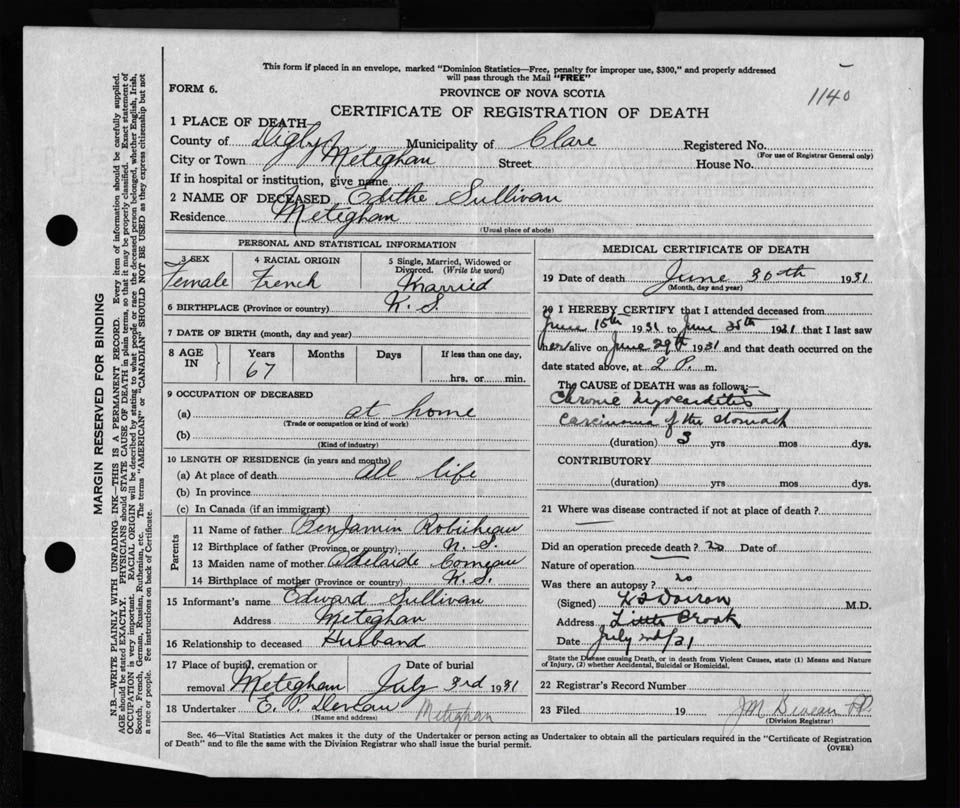 This form if placed in an envelope, marked "Dominion Statistics—Free, penalty for improper use, $300," and properly addressed
will pass through the Mail "FREE"
FORM 6.
PROVINCE OF NOVA SCOTIA
1140
CERTIFICATE OF REGISTRATION OF DEATH
1 PLACE OF DEATH
County of Digby Municipality of Clare Registered No.
(For use of Registrar General only)
City or Town Meteghan Street House No.
If in hospital or institution, give name
2 NAME OF DECEASED Edithe Sullivan
Residence Meteghan
(Usual place of abode)
PERSONAL AND STATISTICAL INFORMATION
3 SEX 4 RACIAL ORIGIN 5 Single, Married, Widowed or
Divorced. (Write the word)
Female French Married
6 BIRTHPLACE (Province or country) N. S.
7 DATE OF BIRTH (month, day and year)
8 AGE IN Years Months Days If less than one day,
67 hrs. or min.
9 OCCUPATION OF DECEASED
(a) at home
(Trade or occupation or kind of work)
(b)
(Kind of industry)
10 LENGTH OF RESIDENCE (in years and months)
(a) At place of death all life
(b) In province
(c) In Canada (if an immigrant)
Parents
11 Name of father Benjamin Robicheau
12 Birthplace of father (Province or country) N. S.
13 Maiden name of mother Adelaide Comeau
14 Birthplace of mother (Province or country) N. S.
15 Informant's name Edward Sullivan
Address Meteghan
16 Relationship to deceased Husband
17 Place of burial, cremation or Date of burial
removal Meteghan July 3rd 1931
18 Undertaker E. P. Deveau Meteghan
(Name and address)
MEDICAL CERTIFICATE OF DEATH
19 Date of death June 30th 1931
(Month, day and year)
20 I HEREBY CERTIFY that I attended deceased from
June 15th 1931 to June 25th 1931 that I last saw
her alive on June 29th 1931 and that death occurred on the
date stated above, at 2 P. m.
The CAUSE OF DEATH was as follows:—
Chronic Myocarditis
Carcinoma of the stomach
(duration) 3 yrs mos dys.
CONTRIBUTORY
(duration) yrs mos dys.
21 Where was disease contracted if not at place of death?
Did an operation precede death? no Date of
Nature of operation
Was there an autopsy? no
(Signed) M.D.
Address Little Brook
Date July 2nd/31
State the Disease causing Death, or in death from Violent Causes, state (1) Means and Nature
of Injury, (2) whether Accidental, Suicidal or Homicidal.
22 Registrar's Record Number
23 Filed 19 J M
(Division Registrar)
Sec. 46—Vital Statistics Act makes it the duty of the Undertaker or person acting as Undertaker to obtain all the particulars required in the "Certificate of Registration
of Death" and to file the same with the Division Registrar who shall issue the burial permit.
(OVER)
MARGIN RESERVED FOR BINDING
N.B.—WRITE PLAINLY WITH UNFADING INK—THIS IS A PERMANENT RECORD. Every item of information should be carefully supplied.
AGE should be stated EXACTLY. PHYSICIANS should STATE CAUSE OF DEATH in plain terms, so that it may be properly classified. Exact statement of
OCCUPATION is very important. RACIAL ORIGIN will be described by stating to what people or race the deceased person belonged, whether English, Irish,
Scotch, French, German, Russian, Ruthenian, etc. The terms "AMERICAN" or "CANADIAN" SHOULD NOT BE USED as they express citizenship but not
a race or people. See instructions on back of Certificate.